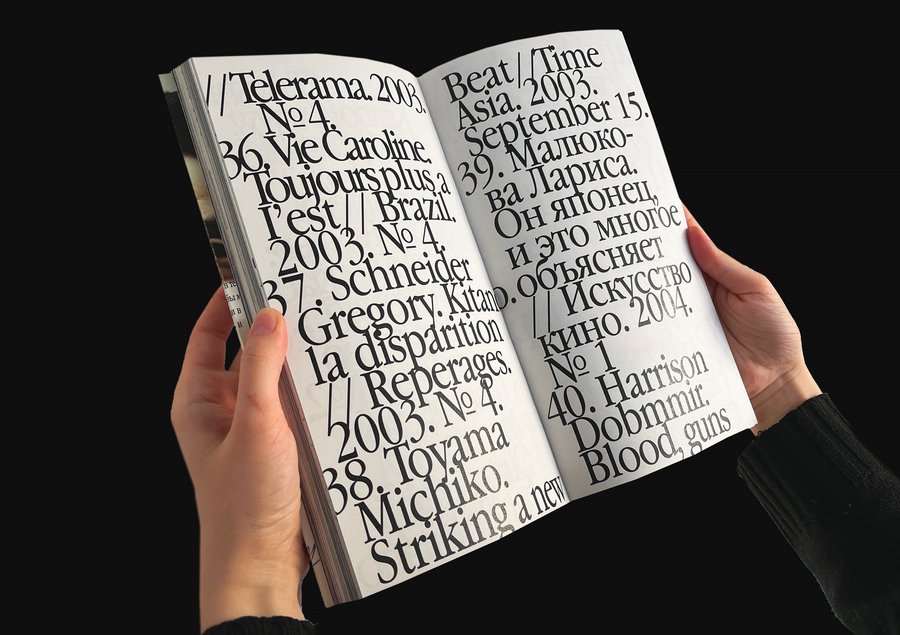 // Telerama. 2003.
№ 4.
36. Vie Caroline.
Toujours plus a
l'est // Brazil.
2003. № 4.
37. Schneider
Gregory. Kitan
la disparition
// Reperages.
2003. № 4.
38. Toyama
Michiko.
Striking a new
Beat // Time
Asia. 2003.
September 15.
39. Малюко-
ва Лариса.
Он японец,
и это многое
объясняет
// Искусство
кино. 2004.
№ 1
40. Harrison
Dobmmir.
Blood, guns